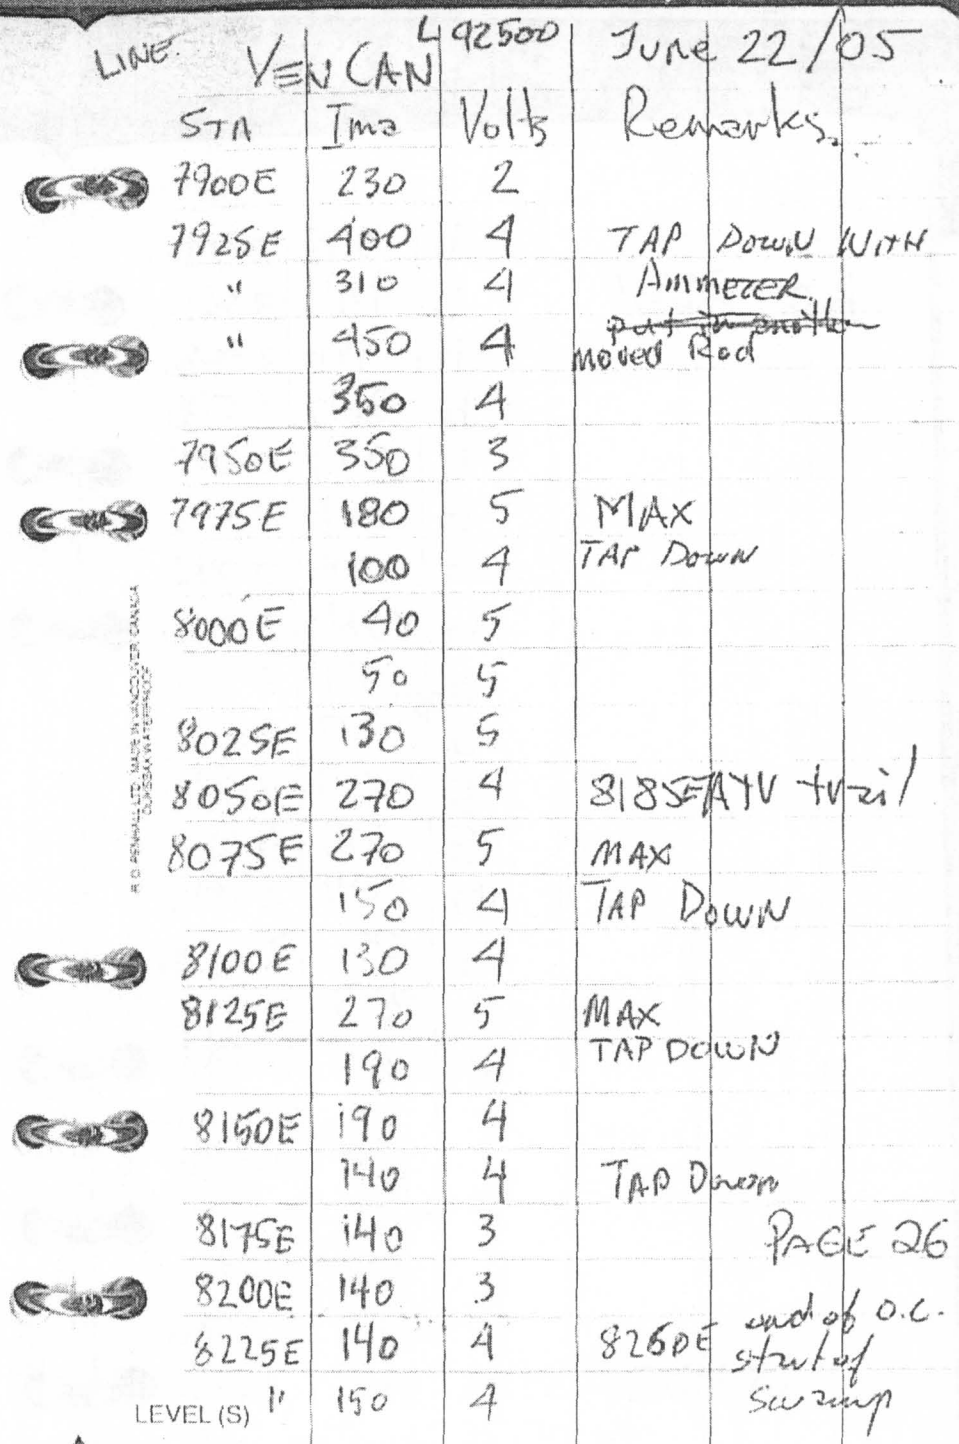 LINE VEN CAN L 92500 June 22/05
STA Ima Volts Remarks.
7900E 230 2
7925E 400 4 TAP DOWN WITH
" 310 4 AMMETER
put in another
" 450 4 moved Rod
350 4
7950E 350 3
7975E 180 5 MAX
100 4 TAP DOWN
8000E 40 5
50 5
8025E 130 5
8050E 270 4 8185E ATV trail
8075E 270 5 MAX
150 4 TAP DOWN
8100E 130 4
8125E 270 5 MAX
190 4 TAP DOWN
8150E 190 4
140 4 TAP Down
8175E 140 3 PAGE 26
8200E 140 3
8225E 140 4 8260E end of o.c.
start of
" 150 4 swamp
LEVEL (S)
R.D. PENHALL LTD. MADE IN VANCOUVER, CANADA
DUKSBAK WATERPROOF